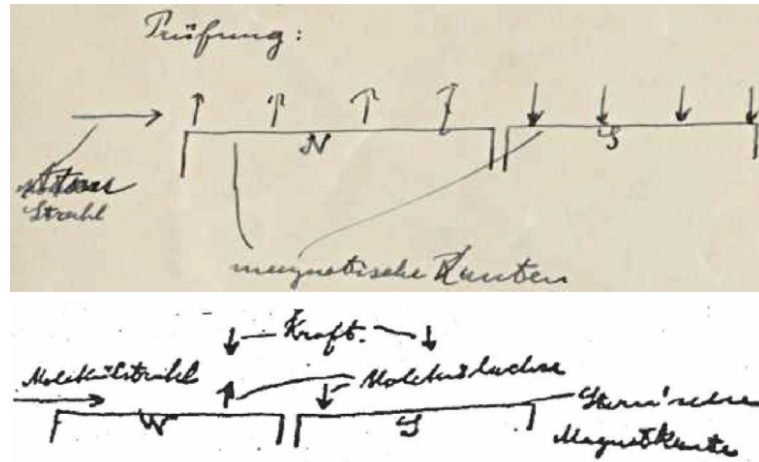 Prüfung:
N
S
Atom
Strahl
magnetische Kanten
Kraft.
Molekülstrahl
Molekülachse
N
S
Stern'sche
Magnetkante